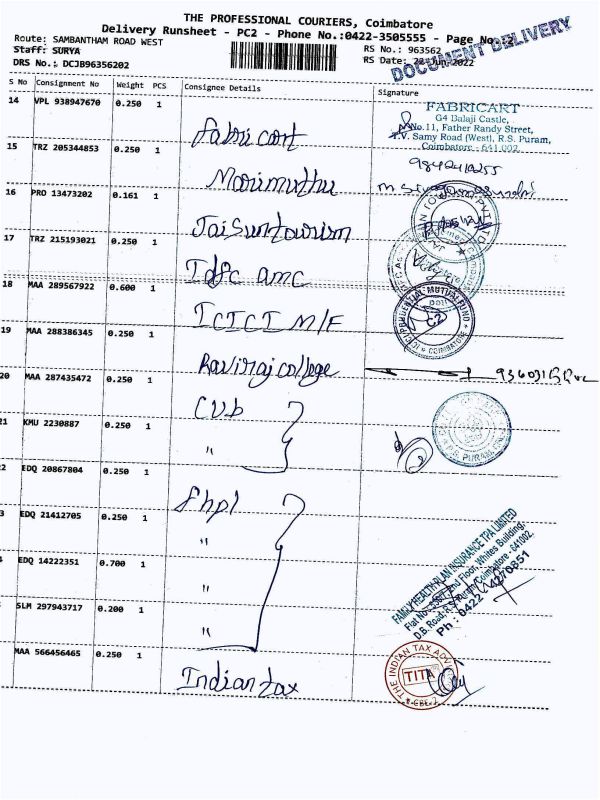 THE PROFESSIONAL COURIERS, Coimbatore
Delivery Runsheet - PC2 - Phone No.:0422-3505555 - Page No.:2
DOCUMENT DELIVERY
Route: SAMBANTHAM ROAD WEST
RS No.: 963562
Staff: SURYA
RS Date: 22-Jun-2022
DRS No.: DCJB96356202
S No Consignment No Weight PCS Consignee Details Signature
14 VPL 938947670 0.250 1
Fabricart
FABRICART
G4 Balaji Castle,
No.11, Father Randy Street,
T.V. Samy Road (West), R.S. Puram,
Coimbatore - 641 002.
15 TRZ 205344853 0.250 1
Marimuthu
16 PRO 13473202 0.161 1
Jaisuntourism
17 TRZ 215193021 0.250 1
Idfc amc
18 MAA 289567922 0.600 1
ICICI M/F
ICICI PRUDENTIAL MUTUAL FUND
COIMBATORE
19 MAA 288386345 0.250 1
Raviraj college
20 MAA 287435472 0.250 1
CUB
21 KMU 2230887 0.250 1
"
2 EDQ 20867804 0.250 1
Fhpl
3 EDQ 21412705 0.250 1
"
EDQ 14222351 0.700 1
"
SLM 297943717 0.200 1
"
FAMILY HEALTH PLAN INSURANCE TPA LIMITED
Floor, Whites Building,
D.B. Road, Coimbatore - 641002.
Ph : 0422 4270851
MAA 566456465 0.250 1
Indian tax
THE INDIAN TAX ADV
TITA
CBE-2